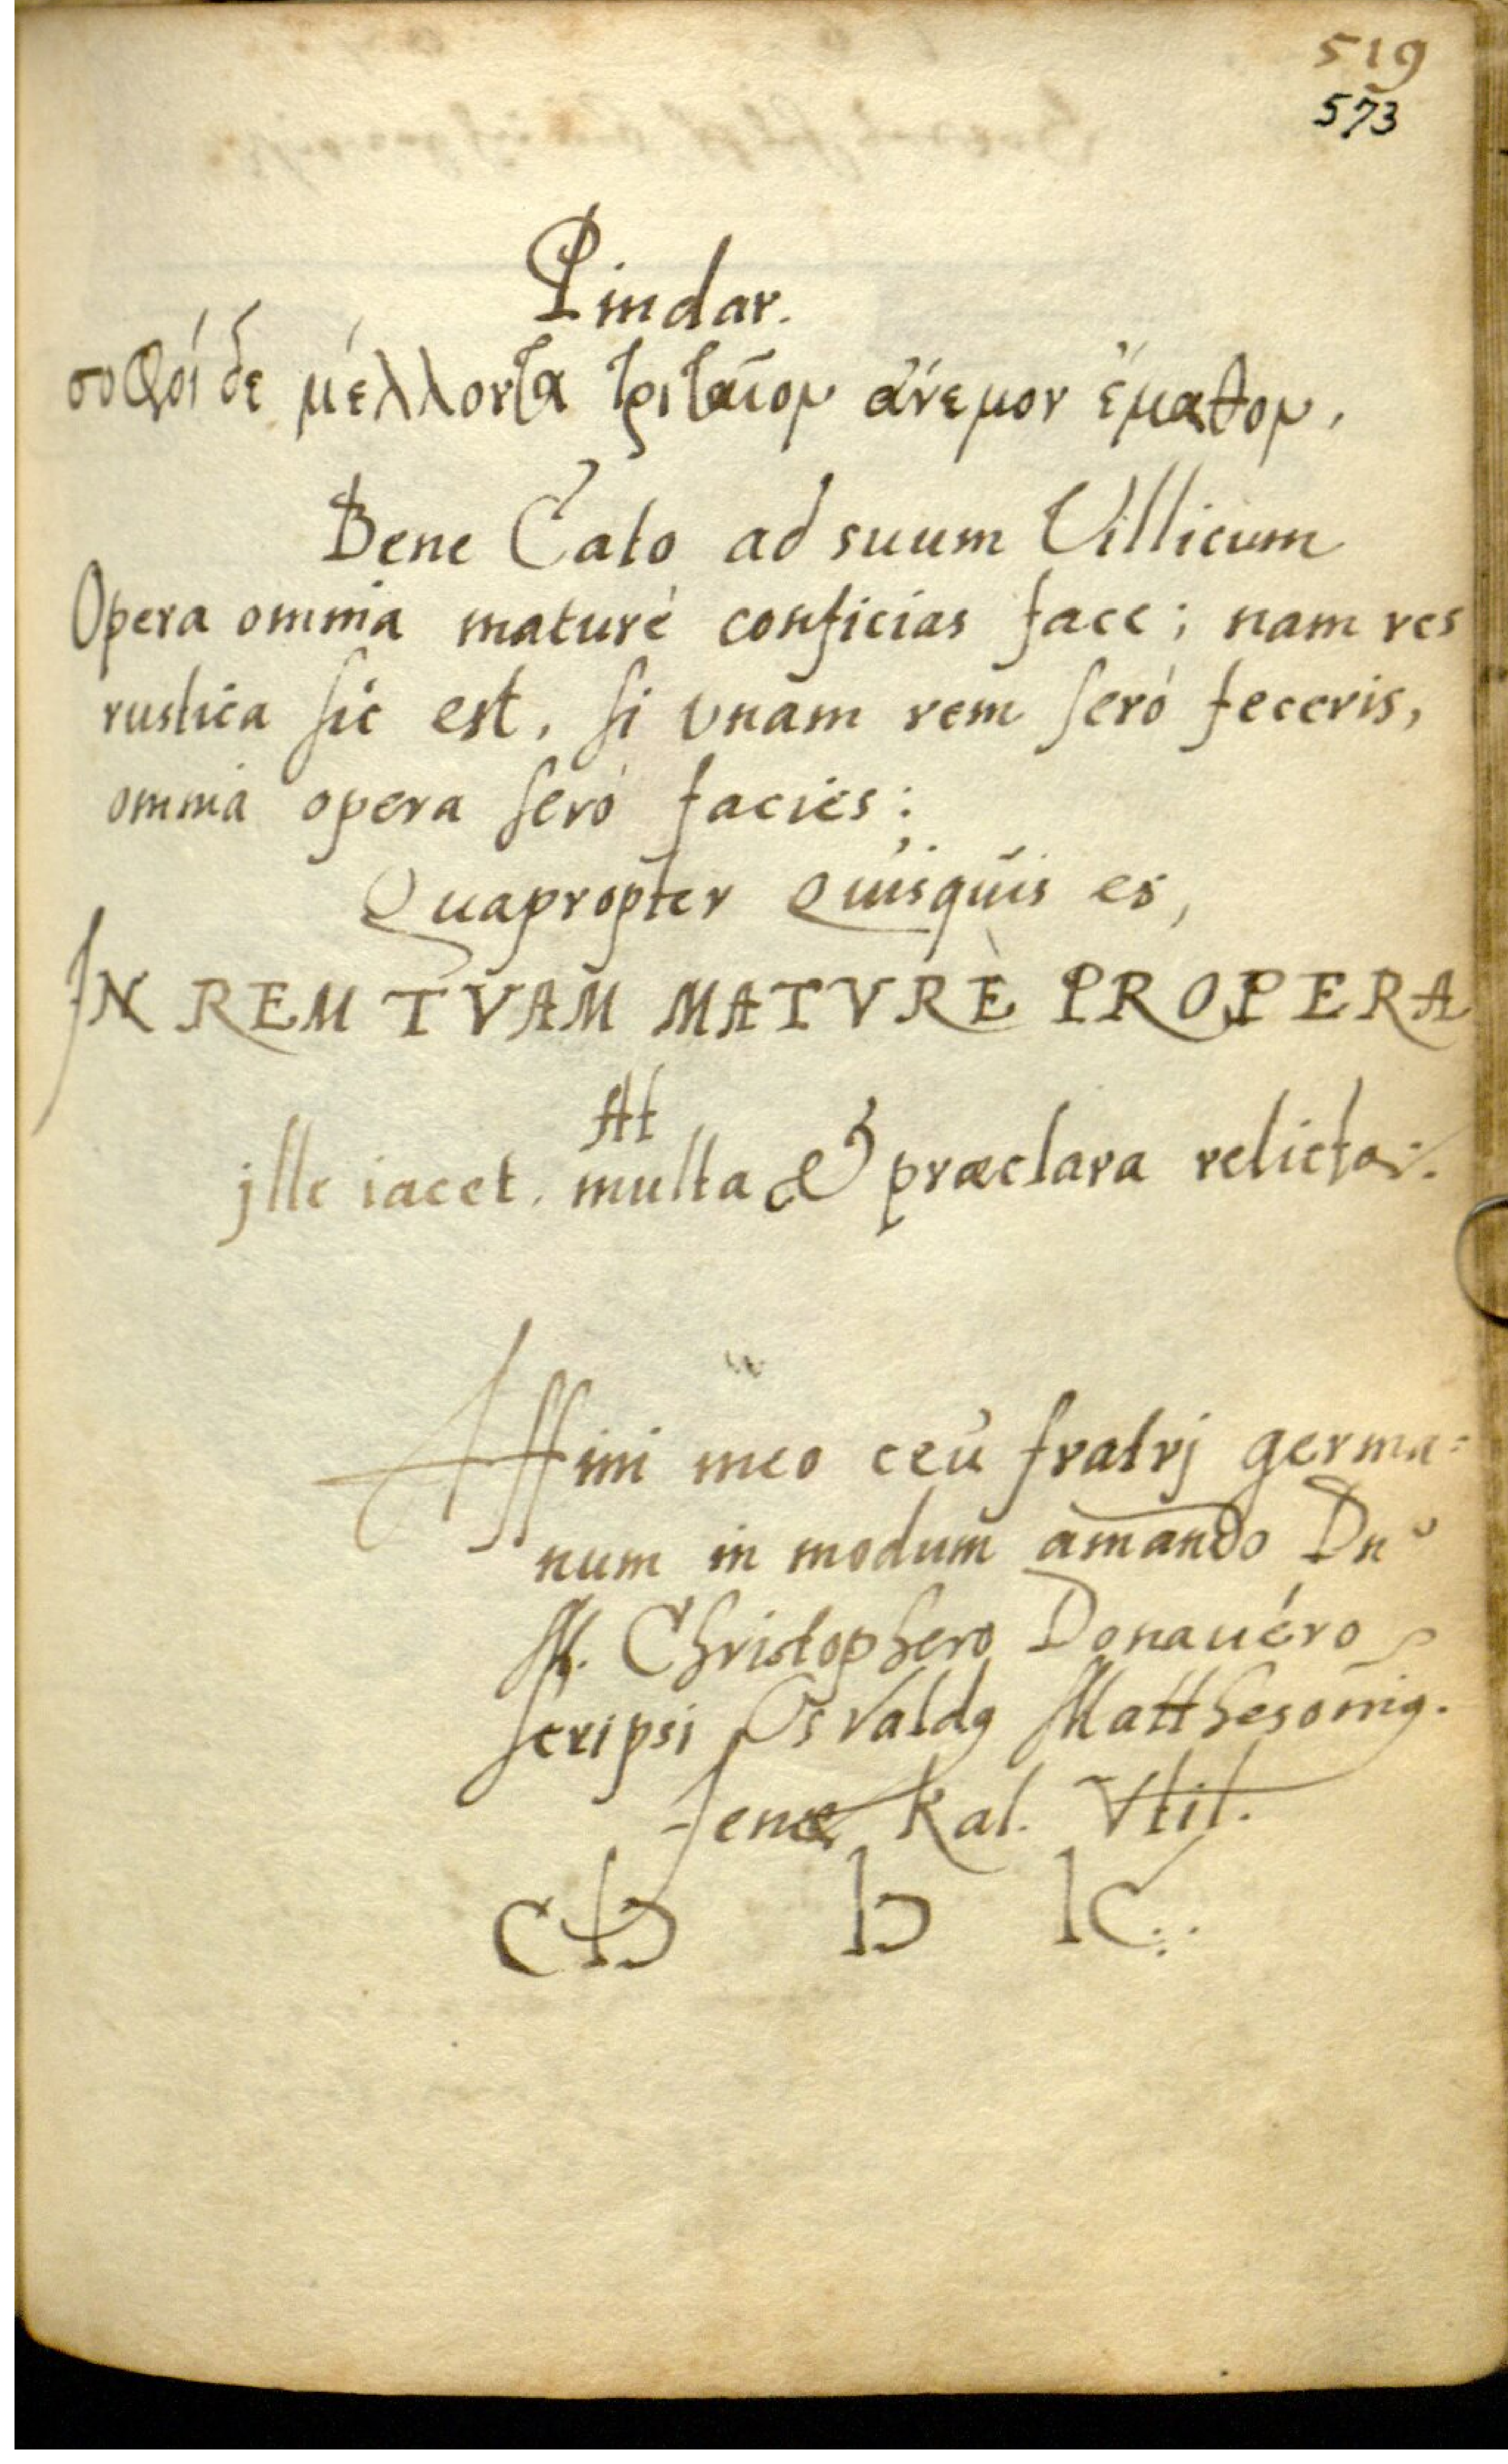 519
573
Pindar.
σοφοί δε μέλλοντα τριταῖον ἄνεμον ἔμαθον,
Bene Cato ad suum Villicum
Opera omnia maturè conficias face; nam res
rustica sic est, si vnam rem serò feceris,
omnia opera serò facies:
Quapropter Quisquis es,
IN REM TVAM MATVRÈ PROPERA
At
jlle iacet. multa & praeclara relicta:.
Affini meo ceu fratrj germa=
num in modum amando Dno
M. Christophero Donauéro
scripsi Osvaldꝯ Matthesoniꝯ.
Jenae Kal. Vtil.
CIↃ IↃ IC